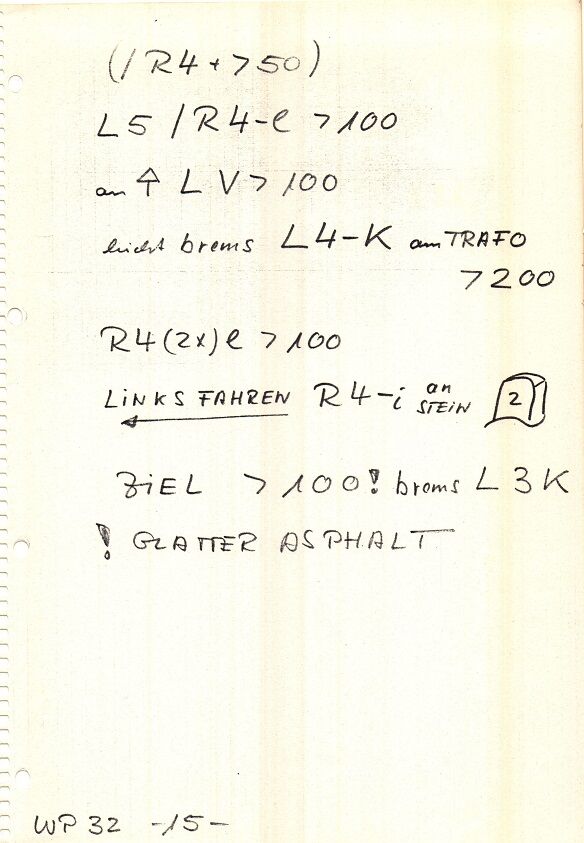 (/ R4+ > 50)
L5 / R4-e > 100
an ↑ L V > 100
leicht brems L4-K am TRAFO
> 200
R4 (2x) e > 100
LINKS FAHREN R4-i an STEIN 2
ZIEL > 100! brems L3K
! GLATTER ASPHALT
WP 32 -15-